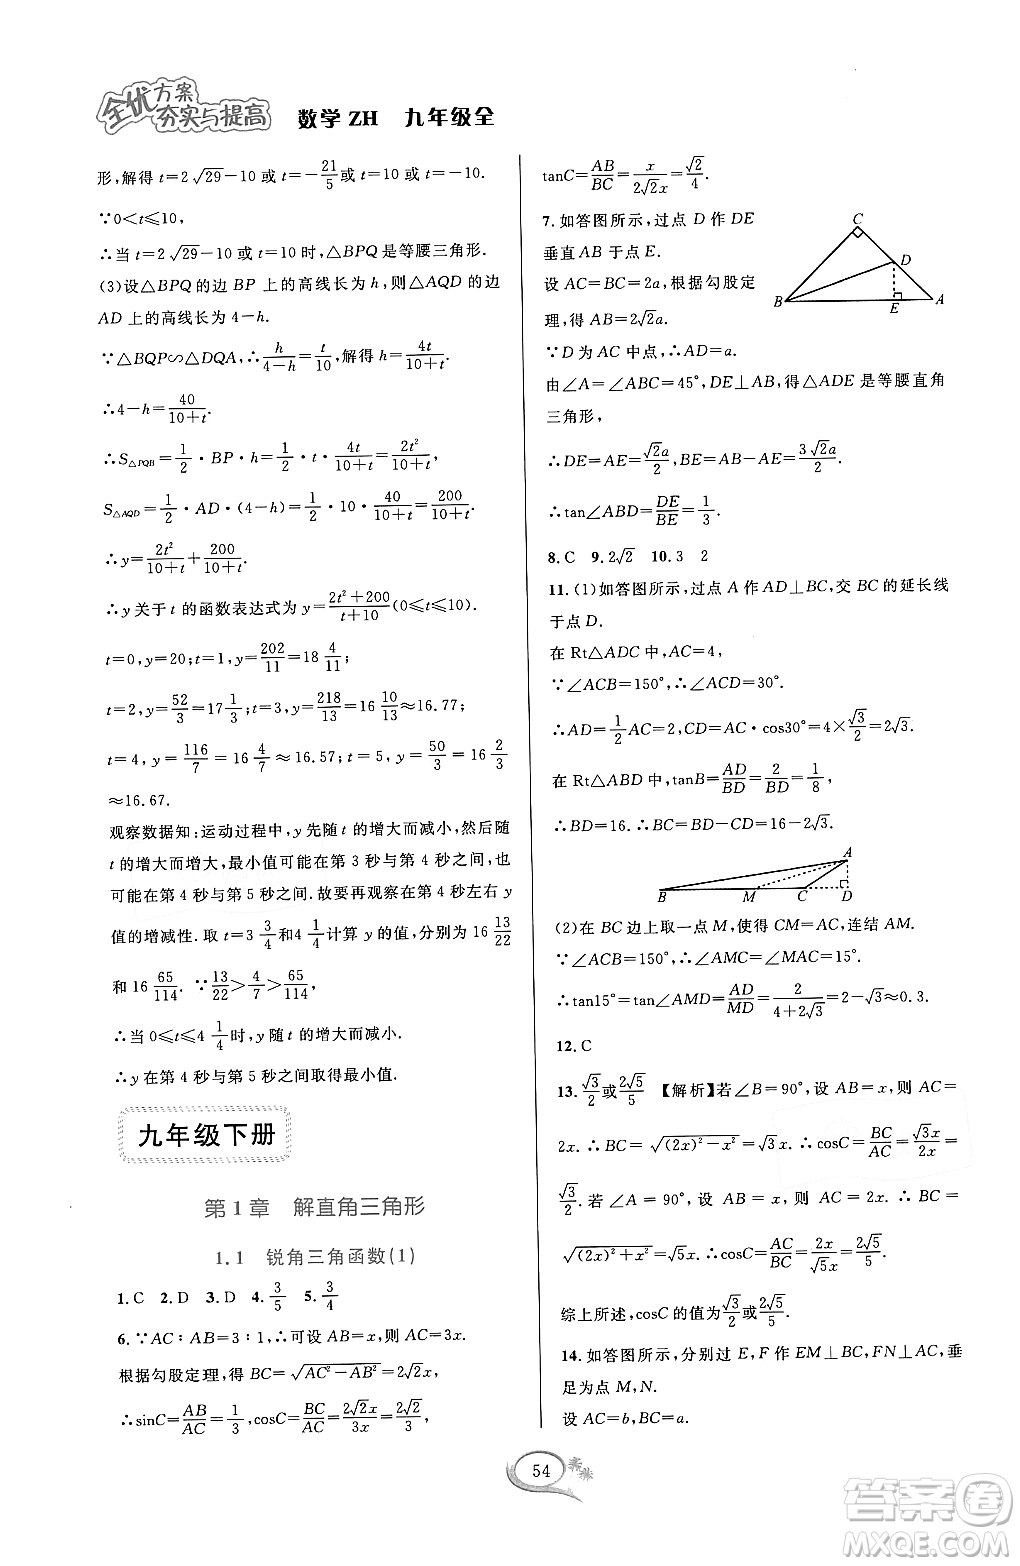 全优方案
夯实与提高
数学ZH 九年级全
形,解得 t=2√29-10或 t=-21/5或 t=10或 t=-10.
∵0<t≤10,
∴当 t=2√29-10或 t=10时,△BPQ是等腰三角形.
(3)设△BPQ的边 BP 上的高线长为 h,则△AQD的边
AD 上的高线长为 4-h.
∵△BQP∽△DQA,∴h/(4-h)=t/10,解得 h=4t/(10+t).
∴4-h=40/(10+t).
∴S△PQB=1/2·BP·h=1/2·t·4t/(10+t)=2t²/(10+t),
S△AQD=1/2·AD·(4-h)=1/2·10·40/(10+t)=200/(10+t).
∴y=2t²/(10+t)+200/(10+t).
∴y 关于 t 的函数表达式为 y=(2t²+200)/(t+10)(0≤t≤10).
t=0,y=20;t=1,y=202/11=18 4/11;
t=2,y=52/3=17 1/3;t=3,y=218/13=16 10/13≈16.77;
t=4,y=116/7=16 4/7≈16.57;t=5,y=50/3=16 2/3
≈16.67.
观察数据知:运动过程中,y 先随 t 的增大而减小,然后随
t 的增大而增大,最小值可能在第 3 秒与第 4 秒之间,也
可能在第 4 秒与第 5 秒之间.故要再观察在第 4 秒左右 y
值的增减性.取 t=3 3/4和4 1/4计算 y 的值,分别为 16 13/22
和 16 65/114.∵13/22>4/7>65/114,
∴当 0≤t≤4 1/4时,y 随 t 的增大而减小.
∴y 在第 4 秒与第 5 秒之间取得最小值.
九年级下册
第1章 解直角三角形
1.1 锐角三角函数(1)
1.C 2.D 3.D 4.3/5 5.3/4
6.∵AC∶AB=3∶1,∴可设 AB=x,则 AC=3x.
根据勾股定理,得 BC=√(AC²-AB²)=2√2x.
∴sinC=AB/AC=1/3,cosC=BC/AC=2√2x/3x=2√2/3,
tanC=AB/BC=x/(2√2x)=√2/4.
7.如答图所示,过点 D 作 DE
垂直 AB 于点 E.
设 AC=BC=2a,根据勾股定
理,得 AB=2√2a.
∵D 为 AC 中点,∴AD=a.
C
D
B
E
A
由∠A=∠ABC=45°,DE⊥AB,得△ADE 是等腰直角
三角形,
∴DE=AE=√2a/2,BE=AB-AE=3√2a/2.
∴tan∠ABD=DE/BE=1/3.
8.C 9.2√2 10.3 2
11.(1)如答图所示,过点 A 作 AD⊥BC,交 BC 的延长线
于点 D.
在 Rt△ADC 中,AC=4,
∵∠ACB=150°,∴∠ACD=30°.
∴AD=1/2AC=2,CD=AC·cos30°=4×√3/2=2√3.
在 Rt△ABD 中,tanB=AD/BD=2/BD=1/8,
∴BD=16.∴BC=BD-CD=16-2√3.
A
B
M
C
D
(2)在 BC 边上取一点 M,使得 CM=AC,连结 AM.
∵∠ACB=150°,∴∠AMC=∠MAC=15°.
∴tan15°=tan∠AMD=AD/MD=2/(4+2√3)=2-√3≈0.3.
12.C
13.√3/2或2√5/5 【解析】若∠B=90°,设 AB=x,则 AC=
2x.∴BC=√((2x)²-x²)=√3x.∴cosC=BC/AC=√3x/2x=
√3/2.若∠A=90°,设 AB=x,则 AC=2x.∴BC=
√((2x)²+x²)=√5x.∴cosC=AC/BC=2x/√5x=2√5/5.
综上所述,cosC 的值为√3/2或2√5/5.
14.如答图所示,分别过 E,F 作 EM⊥BC,FN⊥AC,垂
足为点 M,N.
设 AC=b,BC=a.
54
答案圈
MXQE.COM